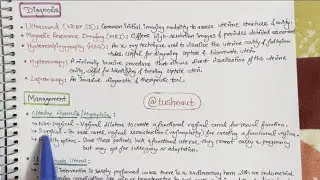 Diagnosis
→ Ultrasound (2D or 3D): Common initial imaging modality to assess uterine structure & cavity.
→ Magnetic Resonance Imaging (MRI): Offers high-resolution images & provides detailed assessment
→ Hysterosalpingography (HSG): An x-ray technique used to visualize the uterine cavity & fallopian
tubes. Useful for diagnosing septate & bicornuate uteri.
→ Hysteroscopy: A minimally invasive procedure that allows direct visualization of the uterine
cavity, useful for identifying & treating septate uteri.
→ Laparoscopy: An invasive diagnostic & therapeutic tool.
Management
@tushnaut
Uterine Agenesis/Hypoplasia:
→ Non-surgical - Vaginal dilators to create a functional vaginal canal for sexual function.
→ Surgical - In some cases, vaginal reconstruction (vaginoplasty) for creating a functional vagina.
options - Since these patients lack a functional uterus, they cannot carry a pregnancy
but may opt for surrogacy or adoption.
Uterus:
Intervention is rarely performed unless there is a rudimentary horn with an endometrial